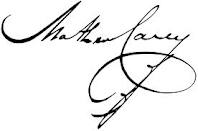 Mathew Carey